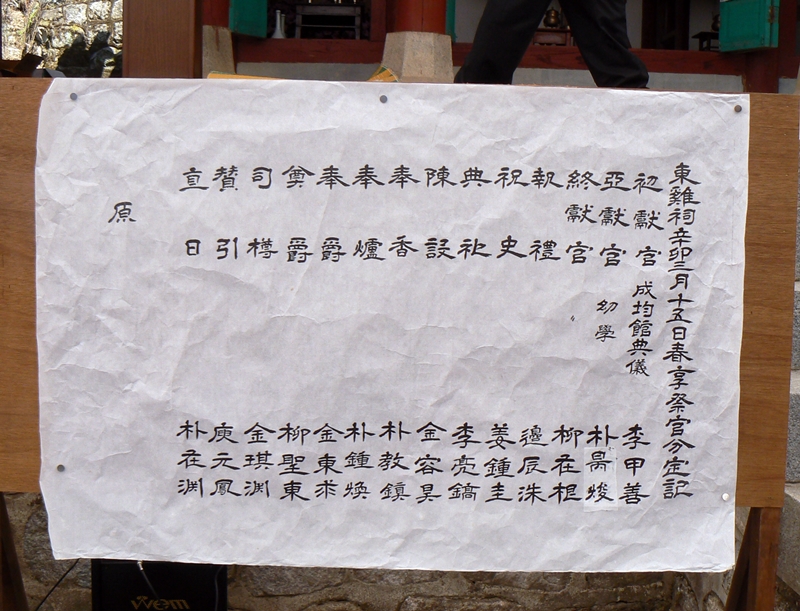 東雞祠辛卯三月十五日春享祭官分定記
初獻官 成均館典儀 李甲善
亞獻官 幼學 朴
終獻官 柳在根
執禮 邊辰洙
祝史 姜鍾圭
典祀 李亮鎬
陳設 金容昊
奉香 朴教鎭
奉爐 朴鍾煥
奉爵 金東求
奠爵 柳聖東
司樽 金琪渊
賛引 庾元鳳
直日 朴在渊
原